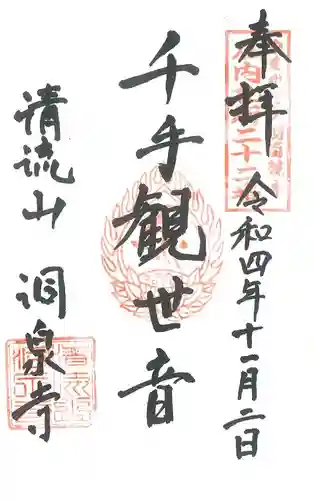 奉拝 令和四年十一月二日
千手観世音
清流山 洞泉寺